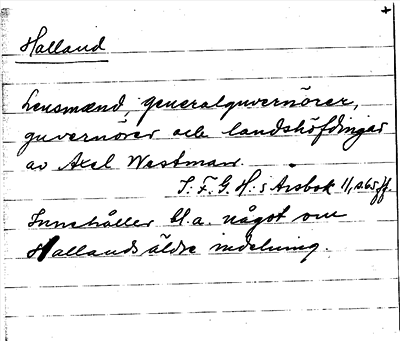 Halland
Lensmænd, generalguvernörer,
guvernörer och landshöfdingar
av Axel Westman.
I: F. G. H:s Årsbok 11, s. 65 ff.
Innehåller bl.a. något om
Hallands äldre indelning.